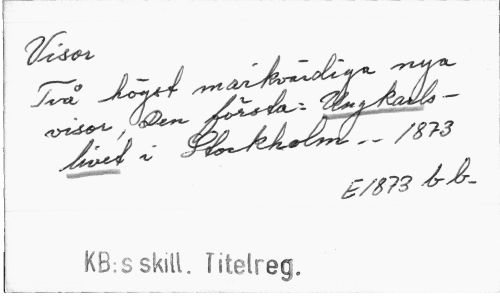 Visor
Två högst märkvärdiga nya
visor, Den första: Ungkarls-
livet i Stockholm -- 1873
E/1873 bb-
KB:s skill. Titelreg.